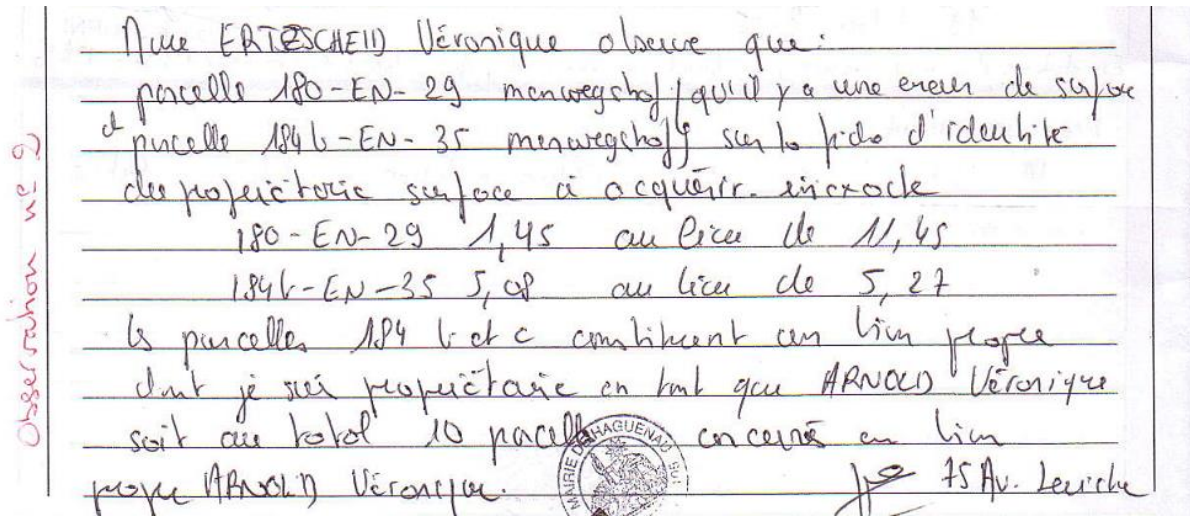 Observation n° 2
Mme ERTZSCHEID Véronique observe que:
parcelle 180-EN-29 menwegshof / qu'il y a une erreur de surface
et parcelle 184 b-EN-35 menwegshoff sur la fiche d'identité
des propriétaire surface à acquérir inexacte
180-EN-29 1,45 au lieu de 11,45
184b-EN-35 5,08 au lieu de 5,27
les parcelles 184 b et c constituent un bien propre
dont je suis propriétaire en tant que ARNOLD Véronique
soit au total 10 parcelles concerné en bien
propre ARNOLD Véronique. 75 Av.
MAIRIE DE HAGUENAU